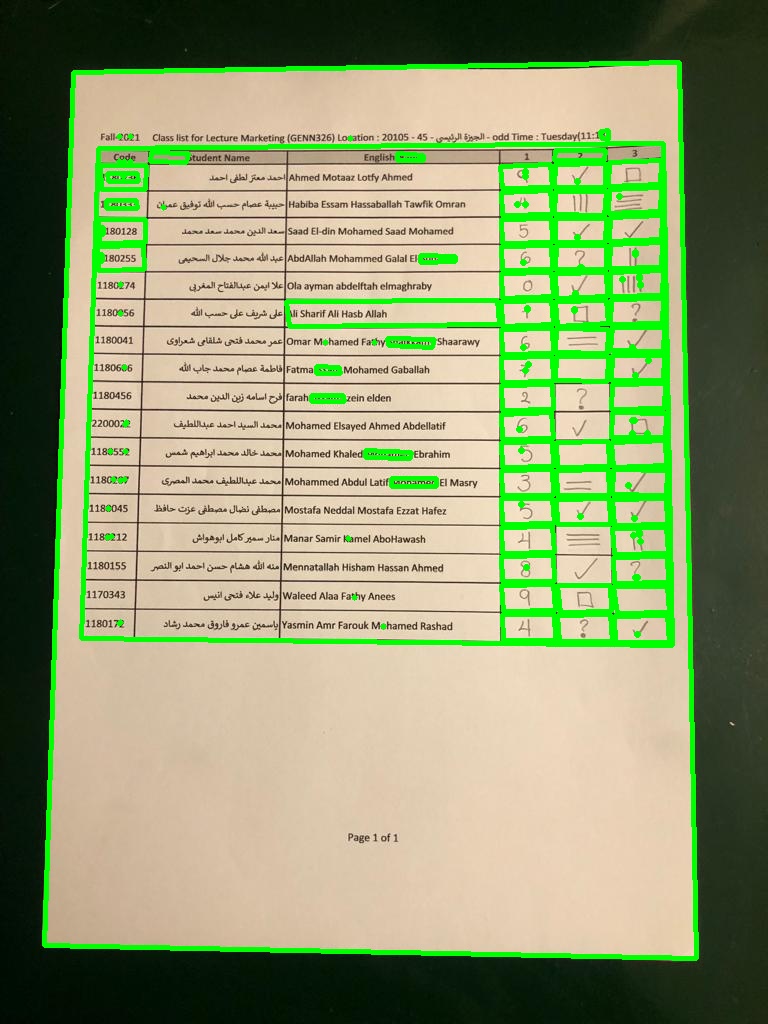 Fall 2021 Class list for Lecture Marketing (GENN326) Location : 20105 - 45 - الجيزة الرئيسي - odd Time : Tuesday(11:1
Code Student Name English 1 2 3
احمد معتز لطفى احمد Ahmed Motaaz Lotfy Ahmed 9 ✓ □
حبيبة عصام حسب الله توفيق عمران Habiba Essam Hassaballah Tawfik Omran 4 ||| ☰
180128 سعد الدين محمد سعد محمد Saad El-din Mohamed Saad Mohamed 5 ✓ ✓
180255 عبد الله محمد جلال السحيمى AbdAllah Mohammed Galal El 6 ? ||
1180274 علا ايمن عبدالفتاح المغربى Ola ayman abdelftah elmaghraby 0 ✓ ||||
على شريف على حسب الله Ali Sharif Ali Hasb Allah □ ?
1180041 عمر محمد فتحى شلقامى شعراوى Omar Mohamed Fathy Shaarawy 6 = ✓
فاطمة عصام محمد جاب الله Fatma Mohamed Gaballah 7 ✓
1180456 فرح اسامه زين الدين محمد farah zein elden 2 ?
محمد السيد احمد عبداللطيف Mohamed Elsayed Ahmed Abdellatif 6 ✓ □
محمد خالد محمد ابراهيم شمس Mohamed Khaled Ebrahim 5
محمد عبداللطيف محمد المصرى Mohammed Abdul Latif Mohamed El Masry 3 = ✓
مصطفى نضال مصطفى عزت حافظ Mostafa Neddal Mostafa Ezzat Hafez 5 ✓ ✓
منار سمير كامل ابوهواش Manar Samir Kamel AboHawash 4 ☰ ||
1180155 منه الله هشام حسن احمد ابو النصر Mennatallah Hisham Hassan Ahmed 8 ✓ ?
1170343 وليد علاء فتحى انيس Waleed Alaa Fathy Anees 9 □
1180172 ياسمين عمرو فاروق محمد رشاد Yasmin Amr Farouk Mohamed Rashad 4 ? ✓
Page 1 of 1